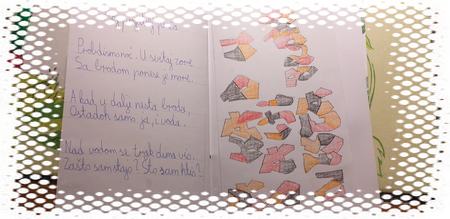 Probdismo noć. U svitu zore
Sa brodom ponese je more.
A kad u dalji nesta broda,
Ostadoh samo ja, i voda.
Nad vodom se trak dima vio.
Zašto sam stajo? Što sam htio?